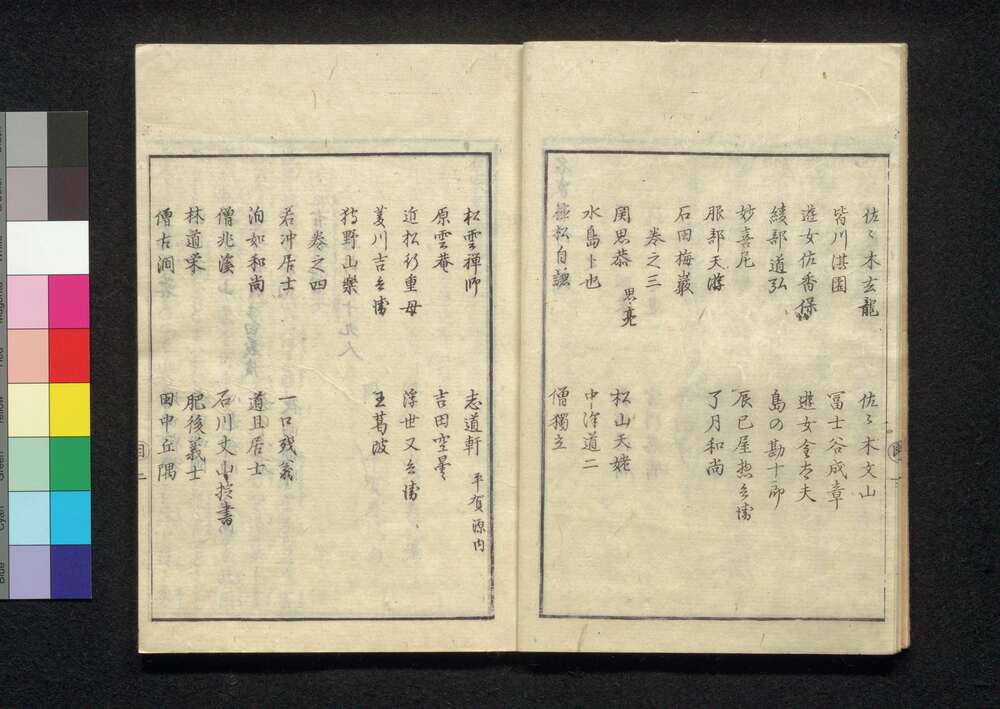 佐〻木玄龍　佐〻木文山
皆川淇園　冨士谷成章
遊女佐香穂　遊女金太夫
綾部道弘　島の勘十郎
妙喜尼　辰巳屋惣兵衛
服部天游　了月和尚
石田梅巌
巻之三
関思恭　思亮　松山天姥
水島卜也　中澤道二
僧獨立
松雲禅師　志道軒　平賀源内
原雲菴　吉田空曇
近松行重母　浮世又兵衛
菱川吉兵衛　王葛陂
狩野山樂
巻之四
若冲居士　一口残翁
泊如和尚　道且居士
僧兆溪　石川丈山控書
林道栄　肥後義士
僧古澗　田中丘隅
目一
目二
Magenta
Red
Cyan
Blue